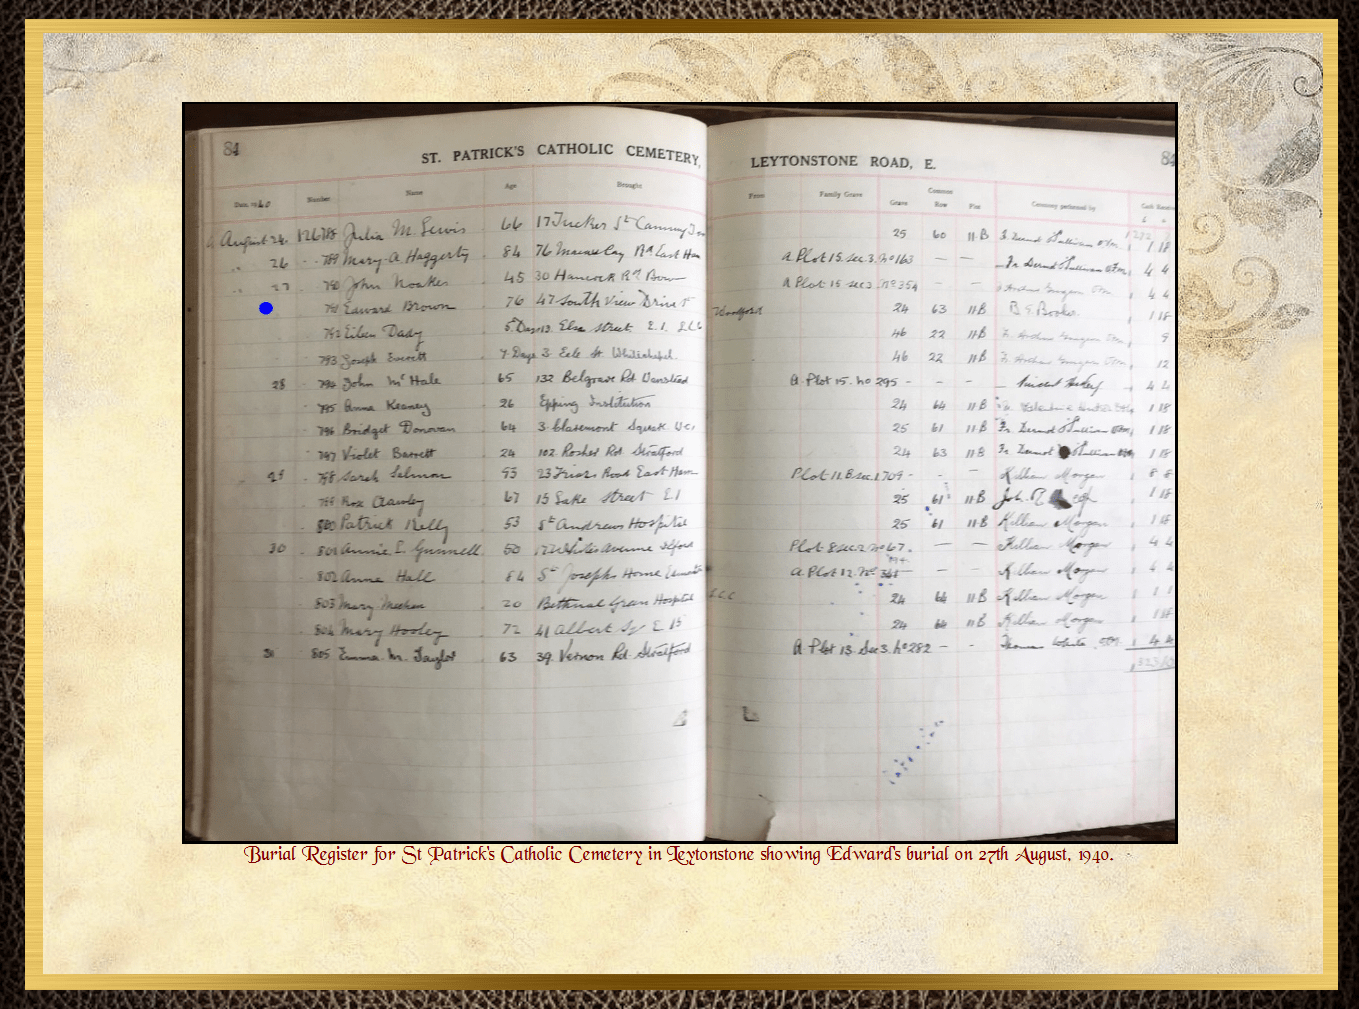 84 ST. PATRICK'S CATHOLIC CEMETERY, LEYTONSTONE ROAD, E. 84
Date, 1940 Number Name Age Brought From Family Grave Grave Common Row Plot Ceremony performed by Cash Received
August 24 12678 Julia M. Lewis 66 17 Tucker St Canning 25 60 11B
26 789 Mary A Haggerty 84 76 Macaulay Rd East Ham A Plot 15. sec. 3. No 163 — — 4 4
27 790 John Noakes 45 30 Hancock Rd Bow A Plot 15 sec 3 No 354 — — 4 4
791 Edward Brown 76 47 South View Drive Woodford 24 63 11B 1 18
792 Eileen Dady 5 Days 13. Elsa Street E.1. 46 22 11B 9
793 Joseph Everett 7 Days 3 Eele St Whitechapel 46 22 11B 12
28 794 John Mc Hale 65 132 Belgrave Rd Wanstead A Plot 15. No 295 - - - 4 4
795 Anna Keaney 26 Epping Institution 24 64 11B 1 18
796 Bridget Donovan 64 3 Claremont Square WC1 25 61 11B 1 18
797 Violet Barrett 24 102 Rosher Rd Stratford 24 63 11B 1 18
29 798 Sarah Salmon 53 23 Friars Road East Ham Plot 11.B sec. 1 709 - - - Killian Morgan 8 8
799 Rose Crawley 67 15 Lake Street E1 25 61 11B 1 18
800 Patrick Kelly 53 St Andrews Hospital 25 61 11B Killian Morgan 1 18
30 801 Annie E. Gunnell 50 Whites Avenue Ilford Plot 8 sec 2 No 67. — — Killian Morgan 4 4
802 Anna Hall 64 St Josephs Home A Plot 12. No — — Killian Morgan 4 4
803 Mary Meehan 20 Bethnal Green Hospital L.C.C 24 64 11B Killian Morgan
804 Mary Hooley 72 41 Albert Sq E 15 24 64 11B Killian Morgan 1 18
31 805 Emma M. Taylor 63 39. Vernon Rd. Stratford A Plot 13. Sec 3. No 282 - - Thomas White 4 4
Burial Register for St Patrick's Catholic Cemetery in Leytonstone showing Edward's burial on 27th August, 1940.